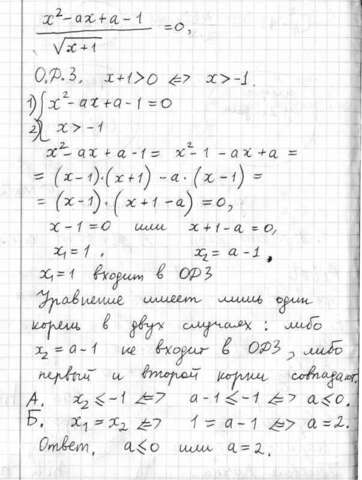 x²-ax+a-1 / √x+1 =0,
О.Р.З. x+1>0 <=> x>-1.
1) { x²-ax+a-1=0
2) { x>-1
x²-ax+a-1= x²-1-ax+a =
=(x-1)·(x+1)-a·(x-1)=
=(x-1)·(x+1-a)=0,
x-1=0 или x+1-a=0,
x₁=1, x₂=a-1,
x₁=1 входит в ОДЗ
Уравнение имеет лишь один
корень в двух случаях: либо
x₂=a-1 не входит в ОДЗ, либо
первый и второй корни совпадают.
А. x₂≤-1 <=> a-1≤-1 <=> a≤0.
Б. x₁=x₂ <=> 1=a-1 <=> a=2.
Ответ. a≤0 или a=2.